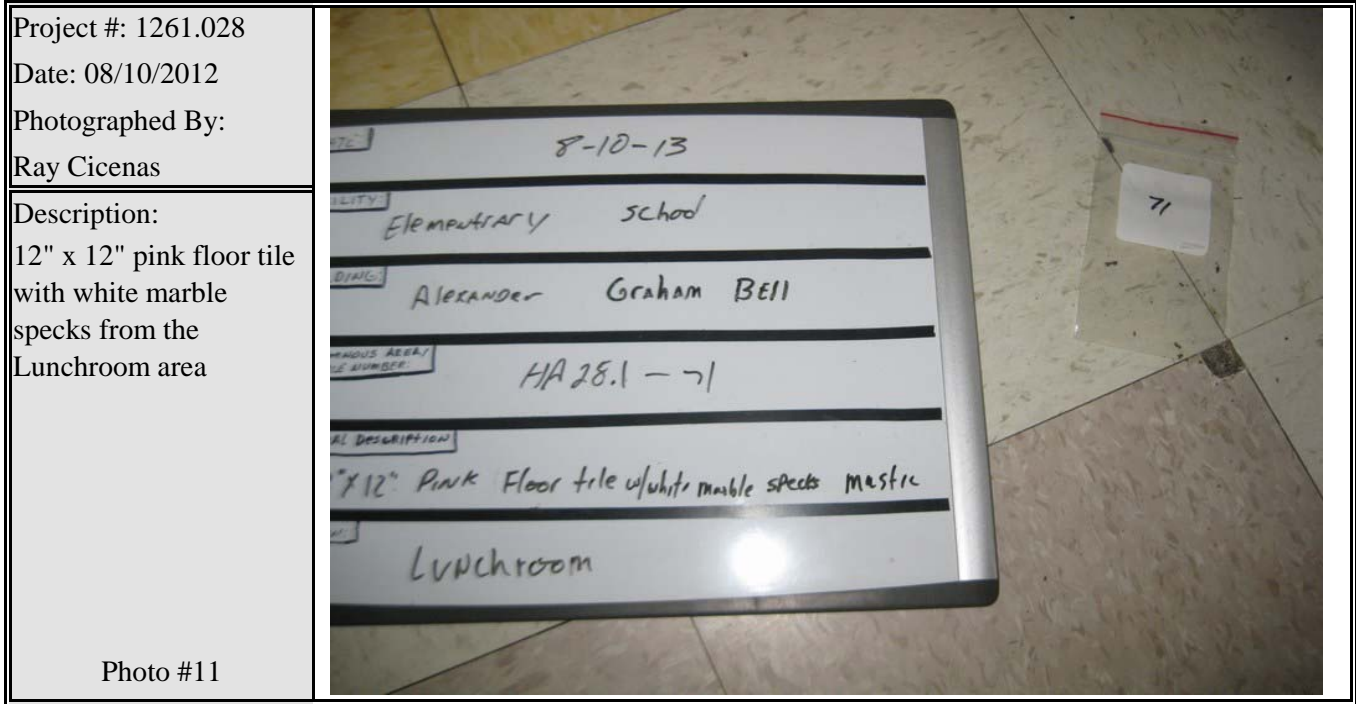 Project #: 1261.028
Date: 08/10/2012
Photographed By:
Ray Cicenas
Description:
12" x 12" pink floor tile
with white marble
specks from the
Lunchroom area
Photo #11
8-10-13
ILITY:
Elementrary School
DING:
Alexander Graham BEll
HA 28.1 - 71
AL DESCRIPTION
"X 12" Pink Floor tile w/white marble specks mastic
Lunchroom
71